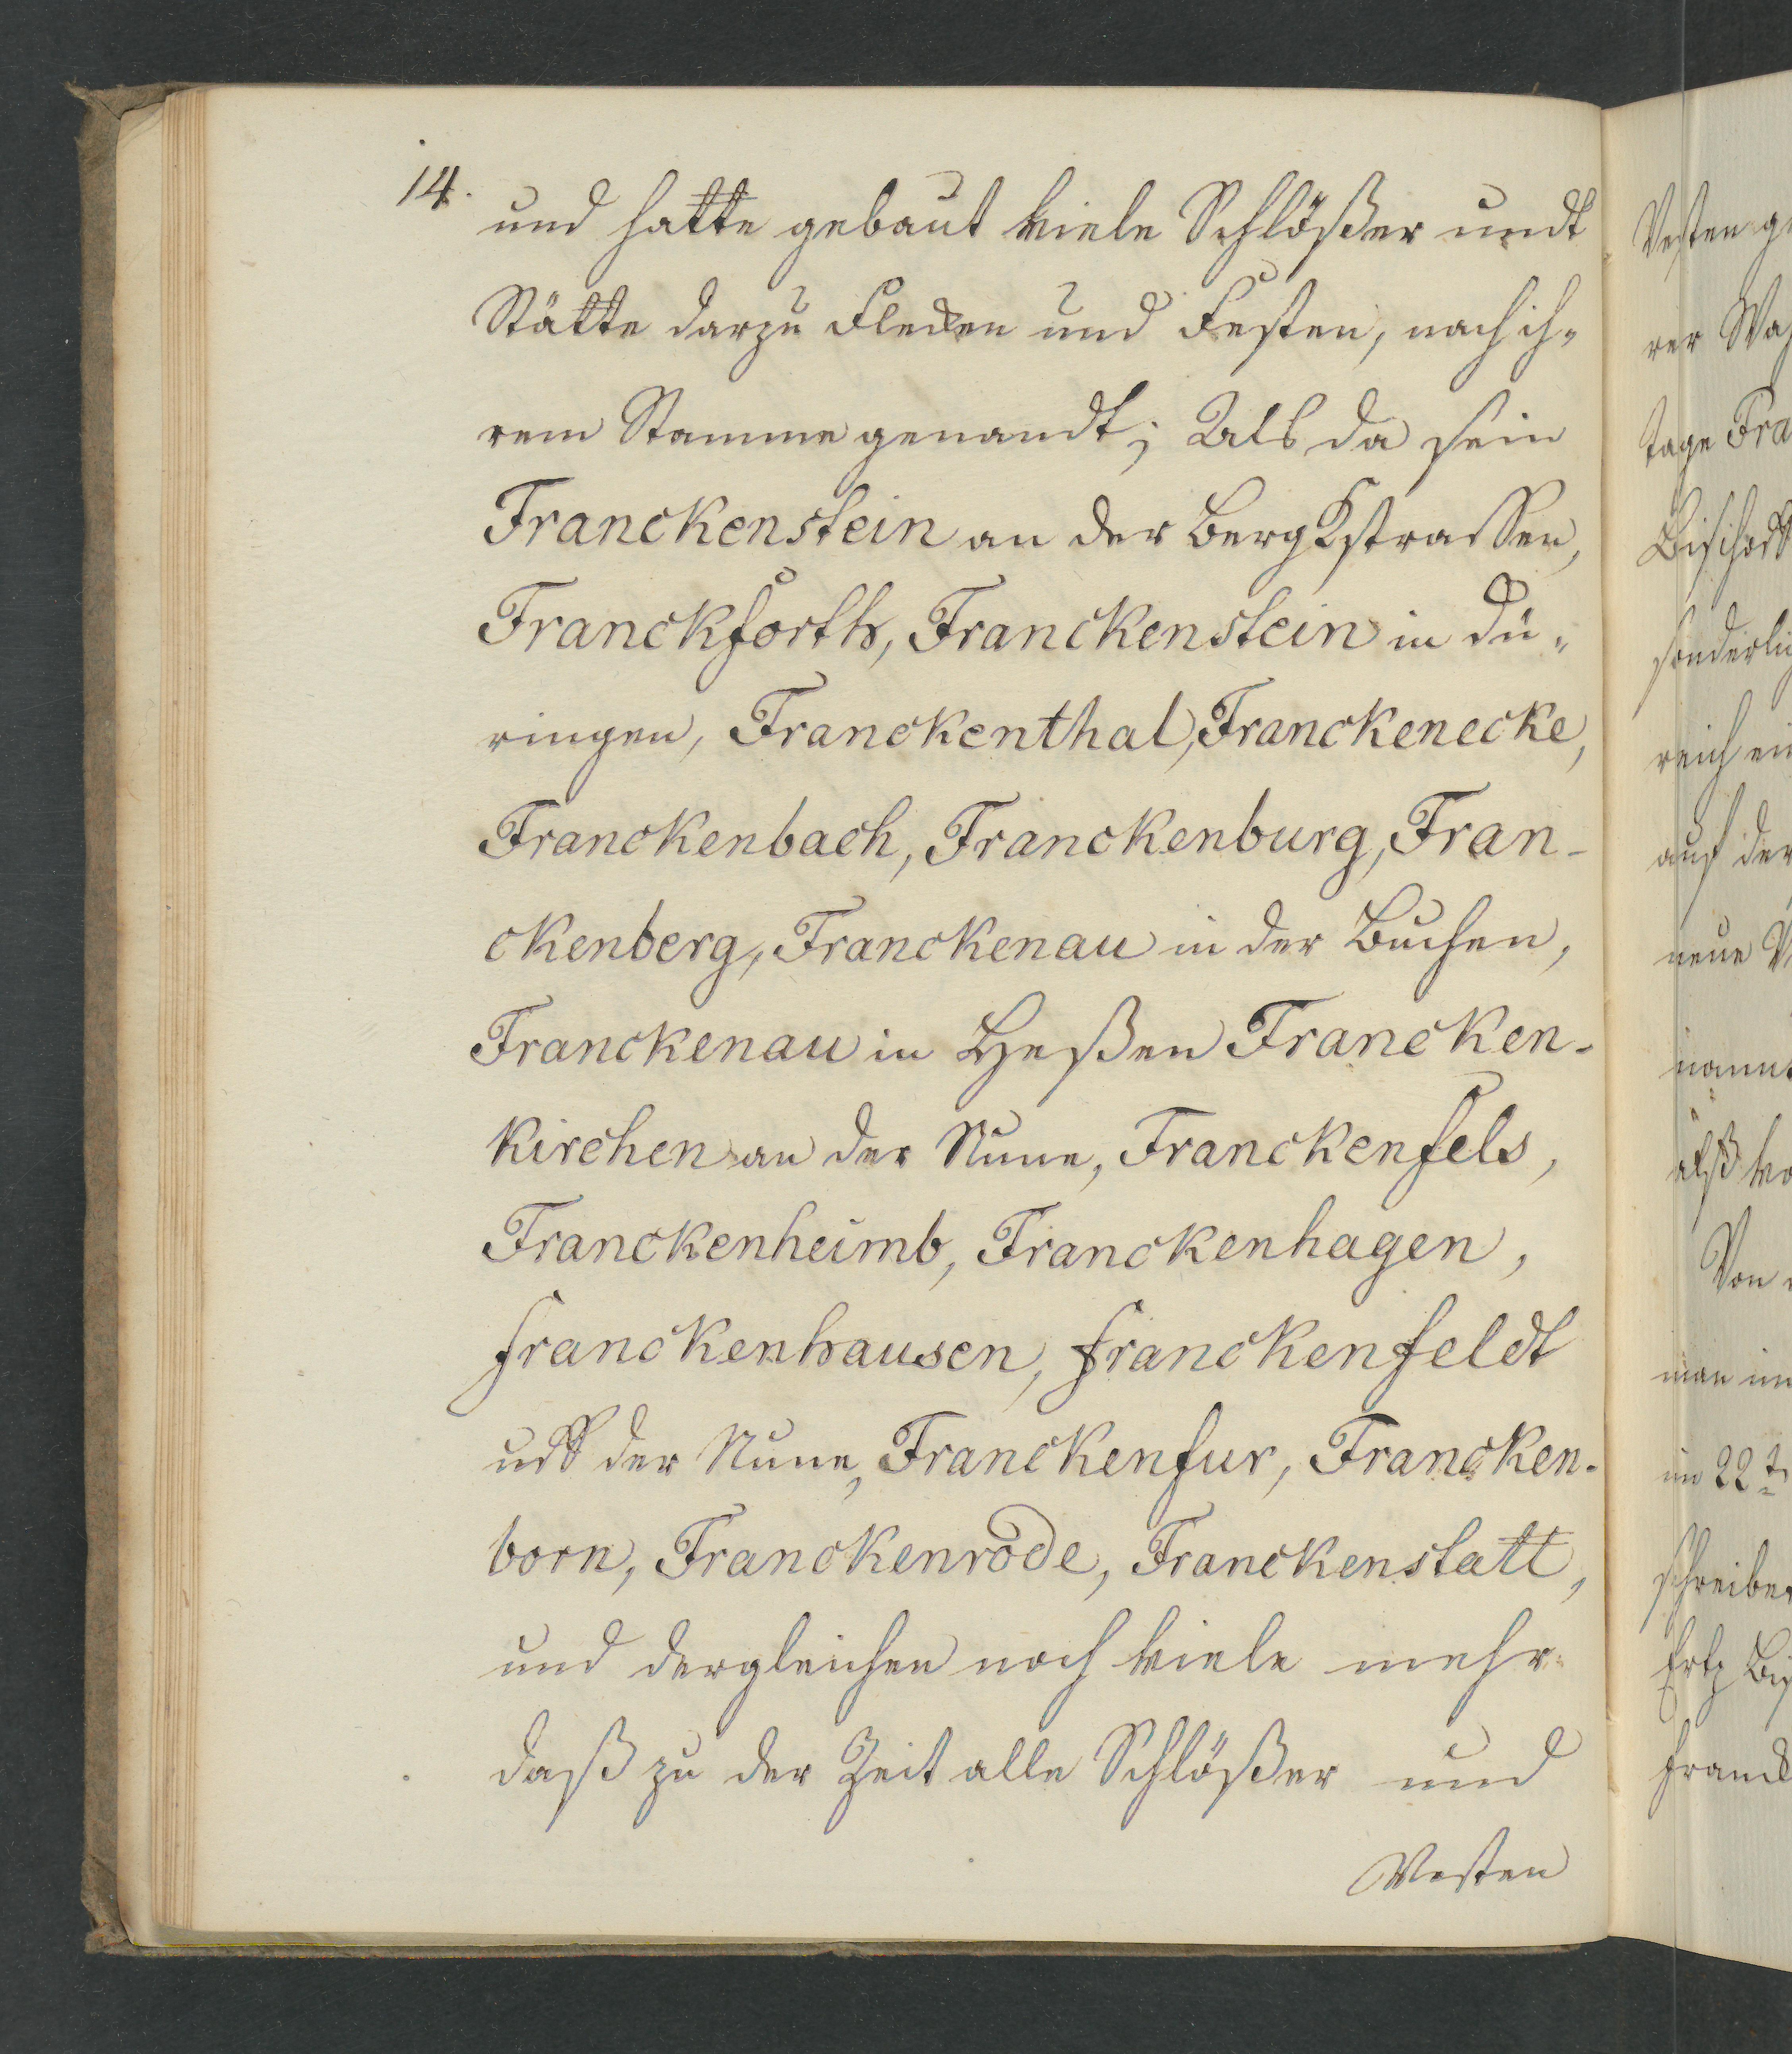 14.
und hatte gebaut viele Schlößer undt
Stätte darzu Flecken und Festen, nach ih-
rem Stamme genandt; Als da sein
Franckenstein an der Bergkstrassen,
Franckforth, Franckenstein in Dü-
ringen, Franckenthal, Franckenecke,
Franckenbach, Franckenburg, Fran-
ckenberg, Franckenau in der Buchen,
Franckenau in Heßen Francken-
kirchen an der Nune, Franckenfels,
Franckenheimb, Franckenhagen,
Franckenhausen, Franckenfeldt
uff der Nune, Franckenfur, Francken-
born, Franckenrode, Franckenstatt,
und dergleichen noch viele mehr
daß zu der Zeit alle Schlößer und
Vesten
Vesten
rer
tage
reich
auf der
neue
Von
man
im 22t